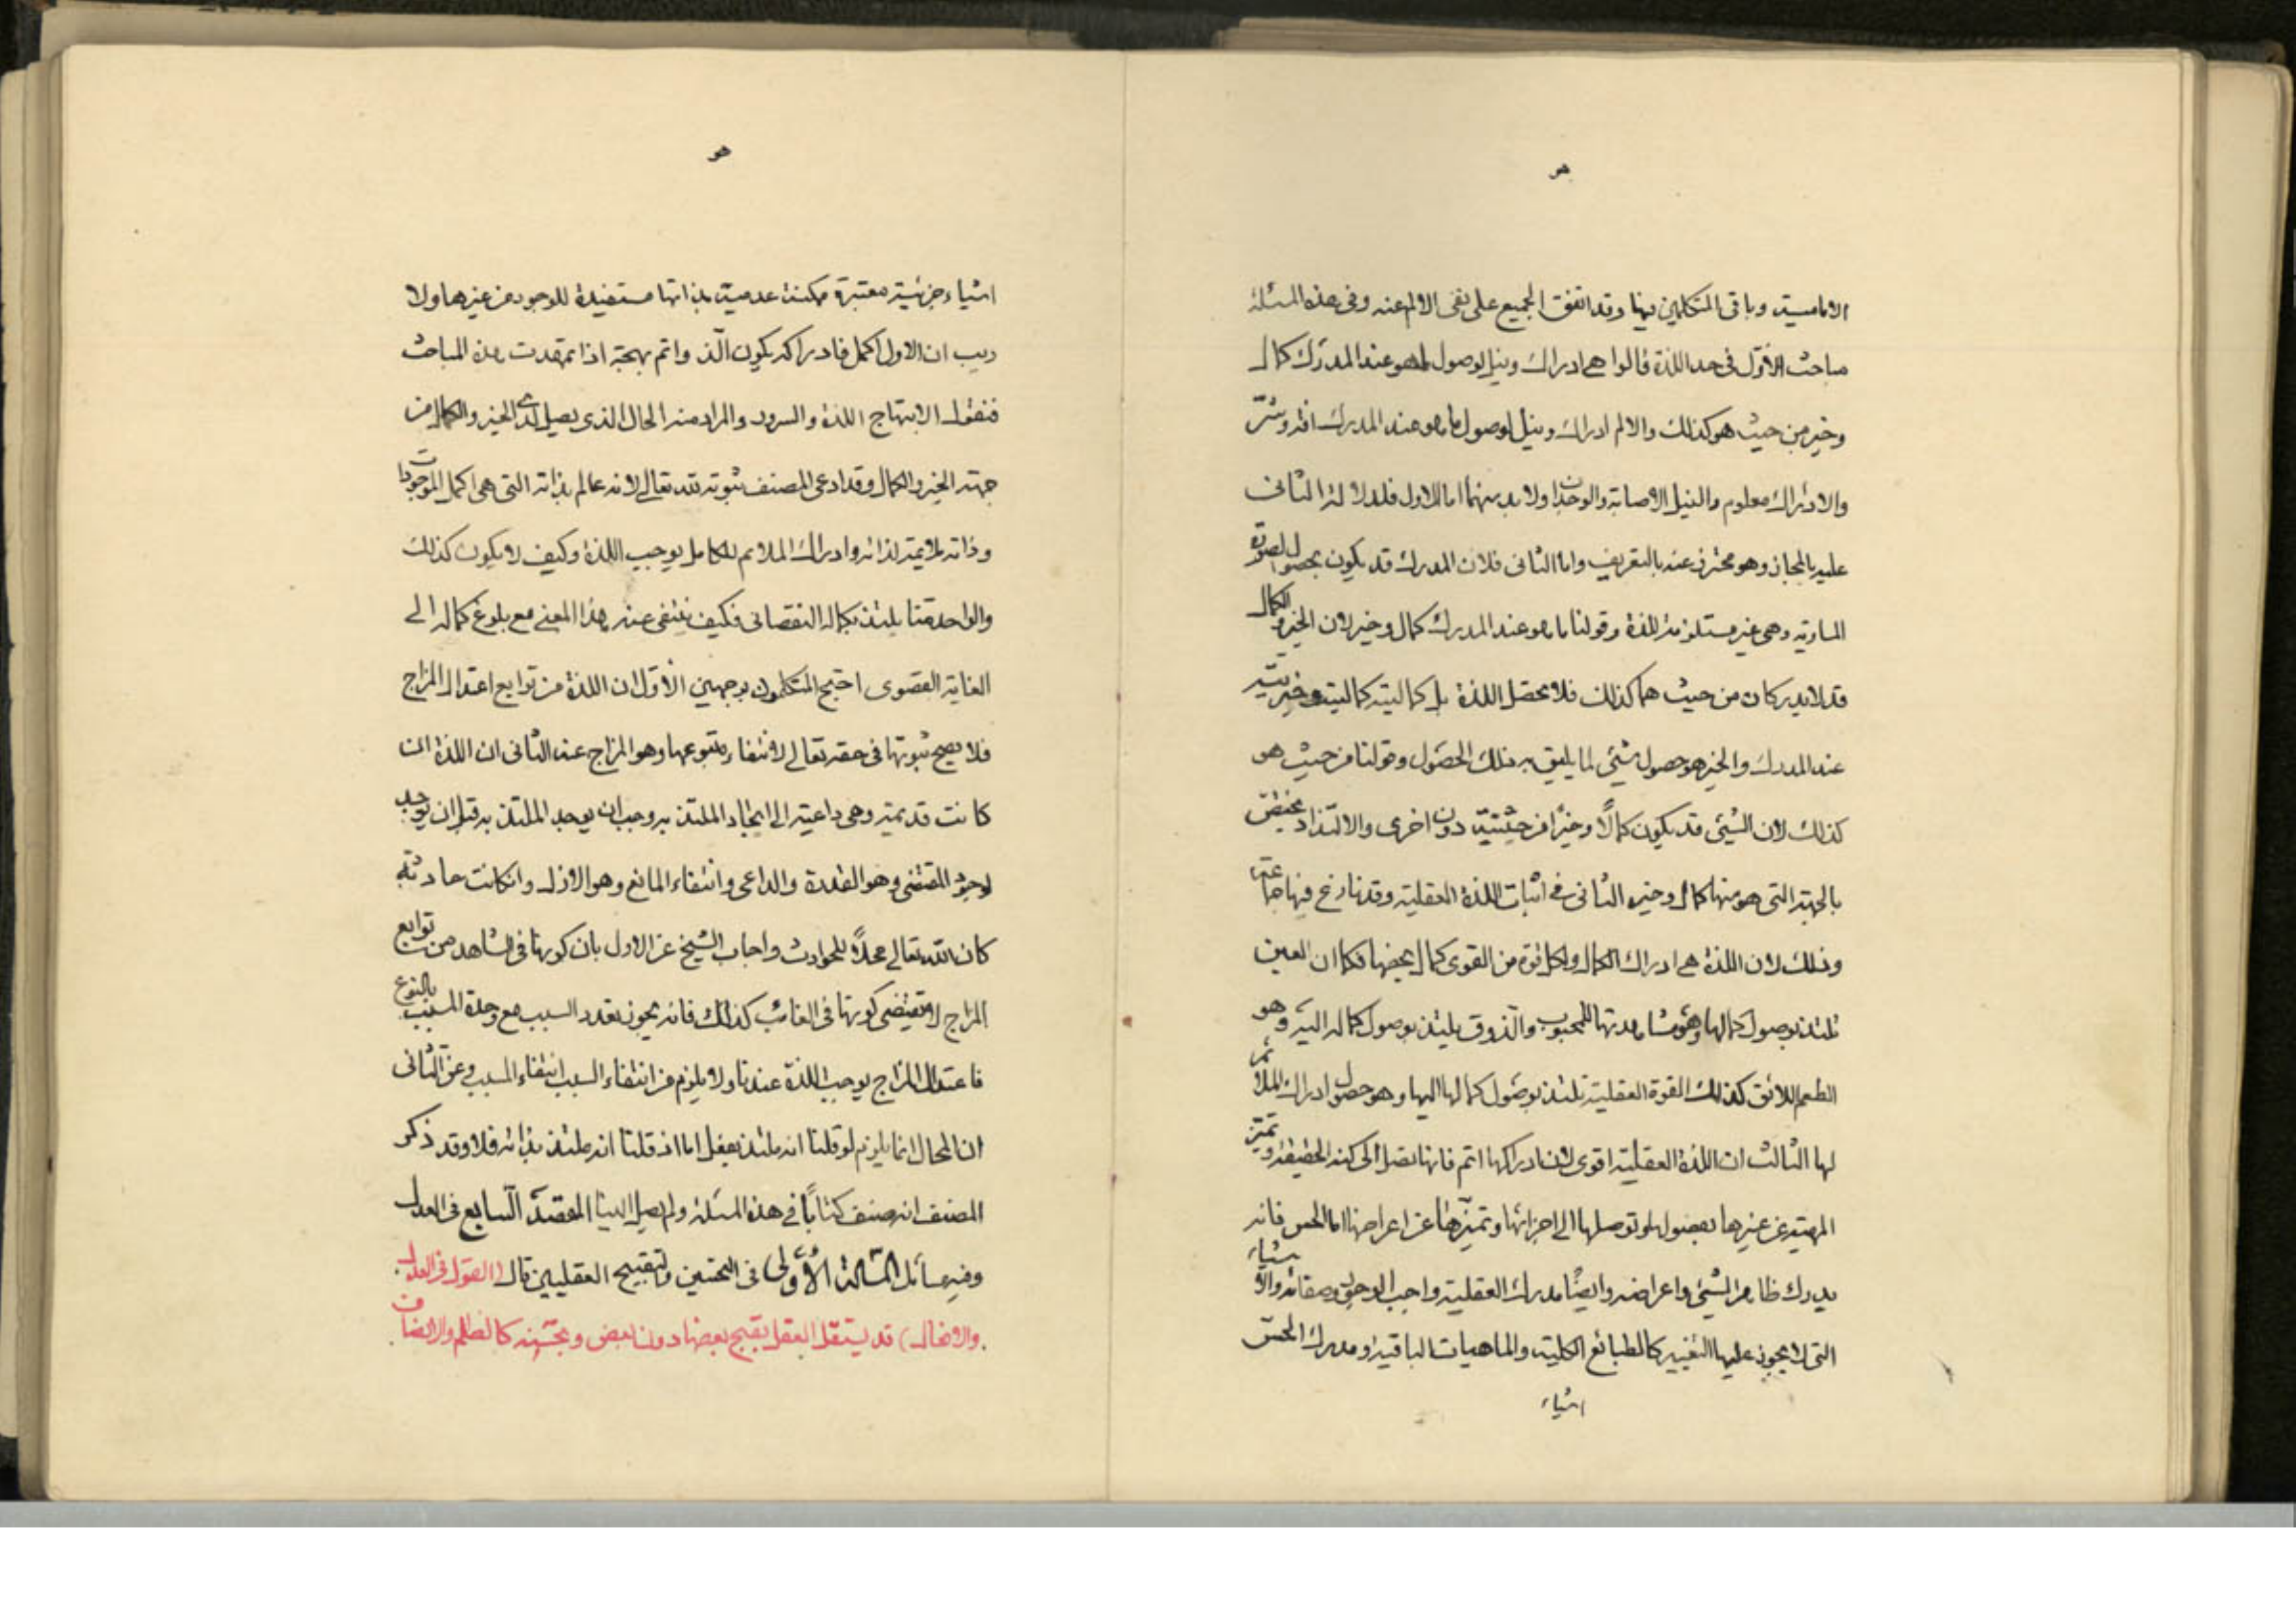 هو
الاماميية وباقى المتكلمين فيها وقد اتفق الجميع على نفى الالم عنه وفى هذه المسئلة
مباحث الأوّل فى حد اللذة قالوا هى ادراك ونيل لوصول لما هو عند المدرك كمال
وخير من حيث هو كذلك والالم ادراك ونيل لوصول ما هو عند المدرك افة وشرّ
والادراك معلوم والنيل الاصابة والوجدان ولا بد منهما اما الاول فلدلالة الثانى
عليه بالمجاز وهو محترز عنه بالتعريف واما الثانى فلان المدرك قد يكون بحصول الصورة
المساوية وهى غير مستلزمة للذة وقولنا ما هو عند المدرك كمال وخير لان الخير والكمال
قد لا يدركان من حيث هما كذلك فلا تحصل اللذة بل كمالية كماليته وخيريته
عند المدرك والخير هو حصول شئ لما يليق به ذلك الحصول وقولنا من حيث هو
كذلك لان الشئ قد يكون كمالًا وخيرًا من حيثيّة دون اخرى والالتذاذ يختصّ
بالجهة التى هو منها كمال وخير الثانى فى اثبات اللذة العقلية وقد نازع فيها جماعة
وذلك لان اللذة هى ادراك الكمال ولكل قوة من القوى كمال يخصها فكما ان العين
تلتذ بوصول كمالها وهو مشاهدتها للمحبوب والذوق يلتذ بوصول كماله اليه وهو
الطعم اللائق كذلك القوة العقلية تلتذ بوصول كمالها اليها وهو حصول ادراك الملائم
لها الثالث ان اللذة العقلية اقوى لان ادراكها اتم فانها تصل الى كنه الحقيقة وتميّز
المهية عن غيرها بفصولها وتوصلها الى اجزائها وتميّزها عن اعراضها اما الحس فانه
يدرك ظاهر الشئ واعراضه وايضًا مدرك العقلية واجب الوجود وصفاته والاشياء
التى لا يجوز عليها التغيير كالطبائع الكلية والماهيات الباقية ومدرك الحسّ
اشياء
هو
اشياء جزئية متغيرة ممكنة عدمية بذاتها مستفيدة للوجود من غيرها ولا
ريب ان الاول اكمل فادراكه يكون الذّ واتم بهجة اذا تمهدت هذه المباحث
فنقول الابتهاج اللذة والسرور والمراد منه الحال الذى يصيل لدى الخير والكمال من
جهة الخير والكمال وقد ادعى المصنف ثبوته لله تعالى لانه عالم بذاته التى هى اكمل الموجودات
وذاته ملايمة لذاته وادراك الملائم الكامل يوجب اللذة وكيف لا يكون كذلك
والواحد منا يلتذ بكماله النقصانى فكيف ينتفى عنه هذا المعنى مع بلوغ كماله الى
الغاية القصوى احتج المتكلمون بوجهين الأوّل ان اللذة من توابع اعتدال المزاج
فلا يصح ثبوتها فى حقه تعالى لانتفاء متبوعها وهو المزاج عنه الثانى ان اللذة ان
كانت قديمة وهى داعية الى ايجاد الملتذ به وجب ان يوجد الملتذ به قبل ان يوجد
لوجود المقتضى وهو القدرة والداعى وانتفاء المانع وهو الازل وانكانت حادثة
كان الله تعالى محلًا للحوادث واجاب الشيخ عن الاول بان كونها فى الشاهد من توابع
المزاج لا يقتضى كونها فى الغائب كذلك فانه يجوز تعدد السبب مع وحدة المسبب بالنوع
فاعتدال المزاج يوجب اللذة عندنا ولا يلزم من انتفاء السبب انتفاء المسبب وعن الثانى
ان المحال انما يلزم لو قلنا انه ملتذ بفعل اما اذ قلنا انه ملتذ بذاته فلا وقد ذكر
المصنف انه صنف كتابًا فى هذه المسئلة ولم يصل الينا المقصد السابع فى العدل
وفيه مسائل المسئلة الأولى فى التحسين والتقبيح العقليين قال (القول فى العدل
والافعال) قد يستقل العقل بقبح بعضها دون بعض وبحسنه كالظلم والانصاف